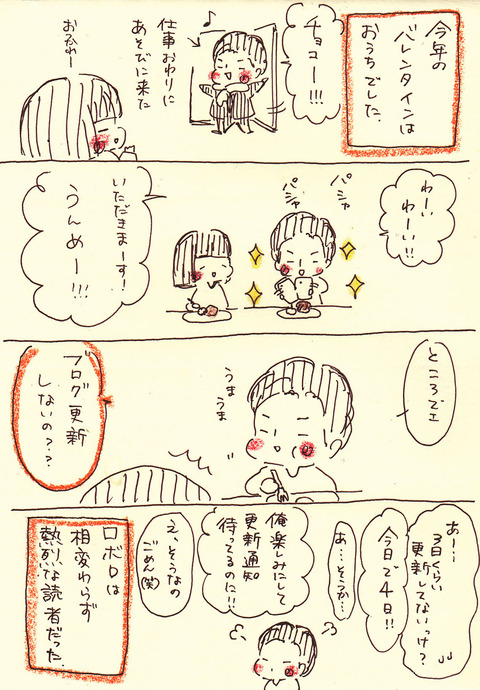 今年の
バレンタインは
おうちでした.
チョコー!!!
♪
仕事おわりに
あそびに来た
おかえりー
わーい
わーい!!
パシャ
パシャ
いただきまーす!
うんめー!!!
ところでェ
うま
うま
ブログ更新
しないの??
あー…
3日くらい
更新してないっけ?
今日で4日!!
あ…そっか…
俺楽しみにして
更新通知
待ってるのに!!
え、そうなの
ごめん(笑)
ロボロは
相変わらず
熱烈な読者だった.